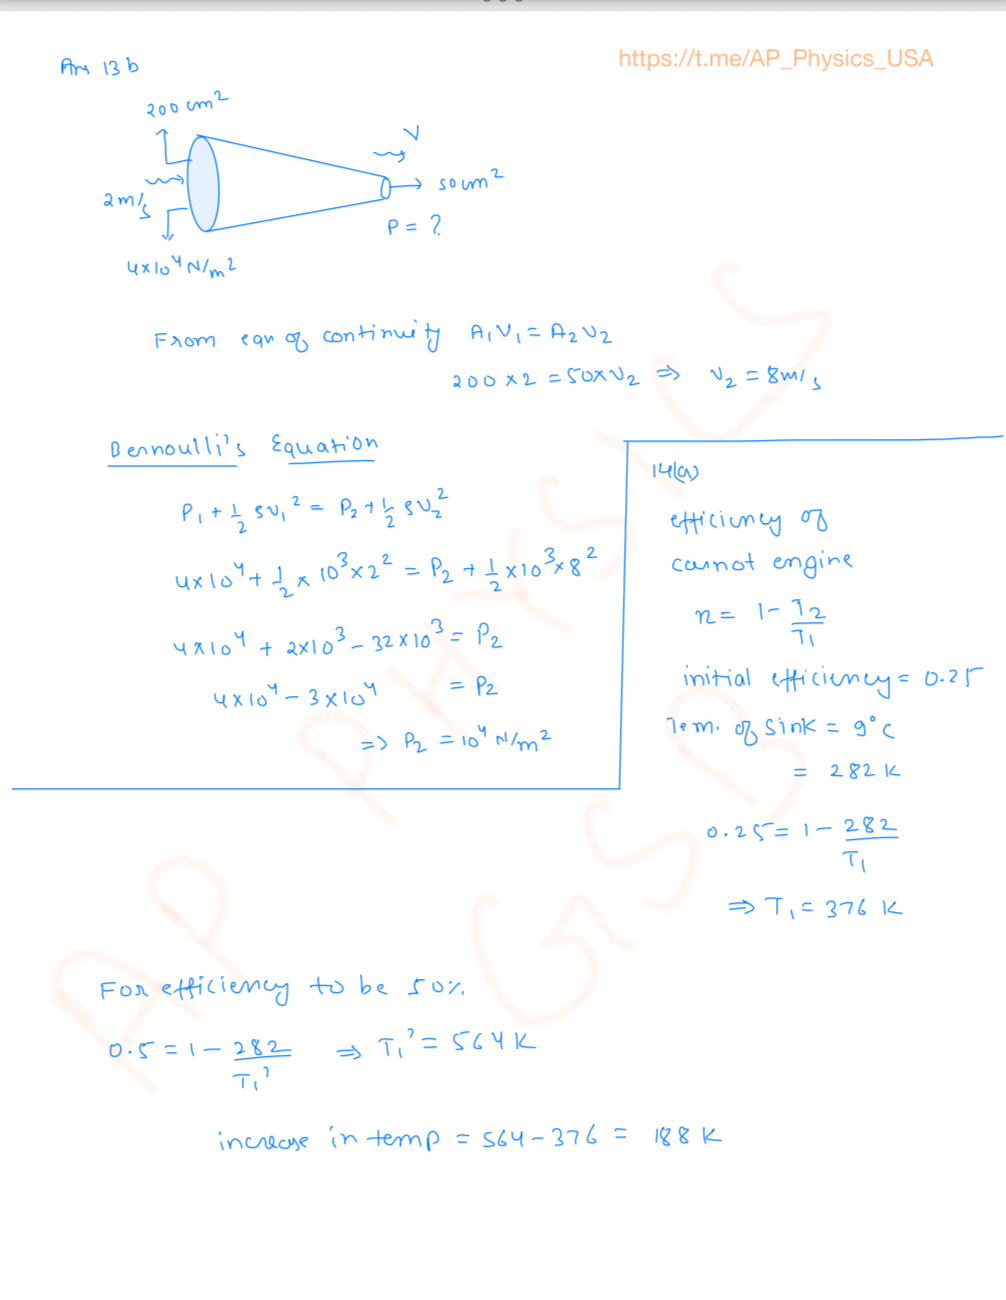 https://t.me/AP_Physics_USA
Ans 13 b
200 cm²
V
2m/s
50 cm²
P = ?
4×10⁴ N/m²
From eqn of continuity A₁V₁ = A₂V₂
200 × 2 = 50×V₂ ⇒ V₂ = 8m/s
Bernoulli's Equation
P₁ + 1/2 ρV₁² = P₂ + 1/2 ρV₂²
4×10⁴ + 1/2 × 10³×2² = P₂ + 1/2 ×10³×8²
4×10⁴ + 2×10³ - 32×10³ = P₂
4×10⁴ - 3×10⁴ = P₂
⇒ P₂ = 10⁴ N/m²
14(a)
efficiency of
carnot engine
η = 1 - T₂/T₁
initial efficiency = 0.25
Tem. of Sink = 9°C
= 282 K
0.25 = 1 - 282/T₁
⇒ T₁ = 376 K
For efficiency to be 50%
0.5 = 1 - 282/T₁' ⇒ T₁' = 564 K
increase in temp = 564 - 376 = 188 K
AP PHYSICS
GSD